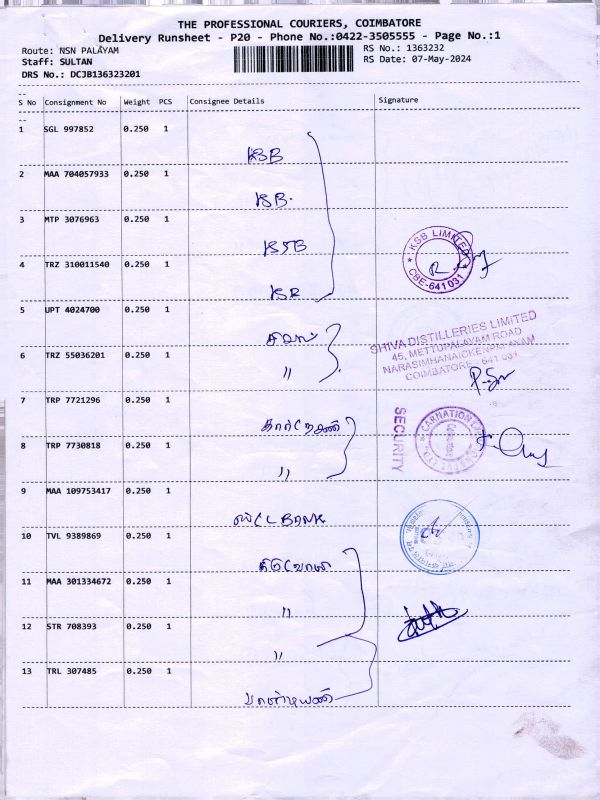 THE PROFESSIONAL COURIERS, COIMBATORE
Delivery Runsheet - P20 - Phone No.:0422-3505555 - Page No.:1
Route: NSN PALAYAM
RS No.: 1363232
Staff: SULTAN
RS Date: 07-May-2024
DRS No.: DCJB136323201
S No Consignment No Weight PCS Consignee Details Signature
1 SGL 997852 0.250 1
KSB
2 MAA 704057933 0.250 1
KSB
3 MTP 3076963 0.250 1
KSB
KSB LIMITED
CBE-641031
4 TRZ 310011540 0.250 1
KSB
5 UPT 4024700 0.250 1
SHIVA DISTILLERIES LIMITED
45, METTUPALAYAM ROAD
NARASIMHANAICKENPALAYAM
COIMBATORE - 641 031
6 TRZ 55036201 0.250 1
〃
7 TRP 7721296 0.250 1
SECURITY
CARNATION
8 TRP 7730818 0.250 1
〃
9 MAA 109753417 0.250 1
BANK
10 TVL 9389869 0.250 1
11 MAA 301334672 0.250 1
〃
12 STR 708393 0.250 1
〃
13 TRL 307485 0.250 1
பாண்டியன்